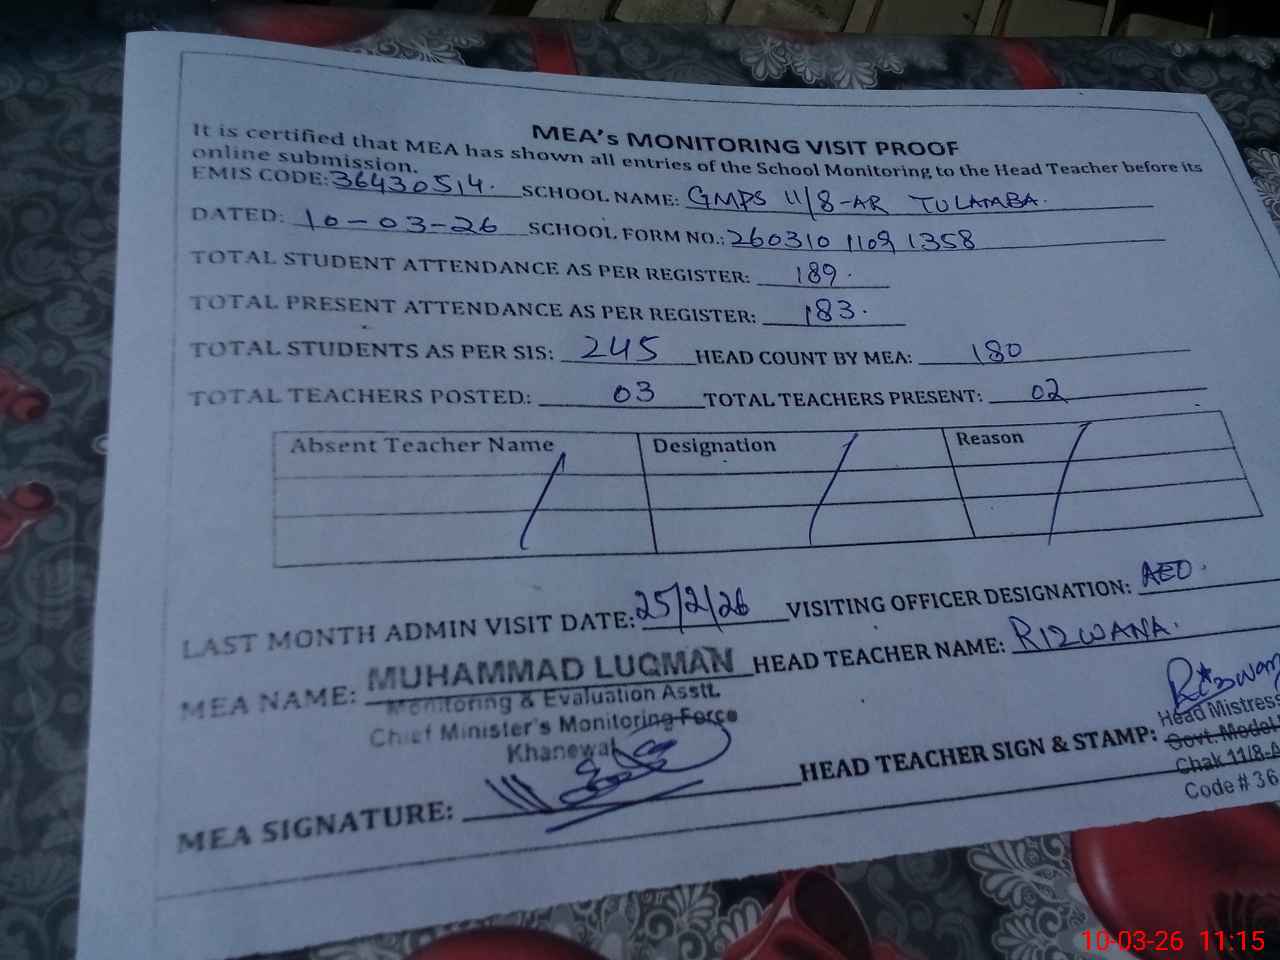 MEA's MONITORING VISIT PROOF
It is certified that MEA has shown all entries of the School Monitoring to the Head Teacher before its
online submission.
EMIS CODE: 36430514. SCHOOL NAME: GMPS 11/8-AR TULAMBA.
DATED: 10-03-26 SCHOOL FORM NO.: 260310 1109 1358
TOTAL STUDENT ATTENDANCE AS PER REGISTER: 189.
TOTAL PRESENT ATTENDANCE AS PER REGISTER: 183.
TOTAL STUDENTS AS PER SIS: 245 HEAD COUNT BY MEA: 180
TOTAL TEACHERS POSTED: 03 TOTAL TEACHERS PRESENT: 02
Absent Teacher Name Designation Reason
LAST MONTH ADMIN VISIT DATE: 25/2/26 VISITING OFFICER DESIGNATION: AEO.
MEA NAME: MUHAMMAD LUQMAN HEAD TEACHER NAME: RIZWANA.
Monitoring & Evaluation Asstt.
Chief Minister's Monitoring Force
Khanewal
MEA SIGNATURE: HEAD TEACHER SIGN & STAMP:
Head Mistress
Govt. Model
Chak 11/8-A
Code # 36
10-03-26 11:15